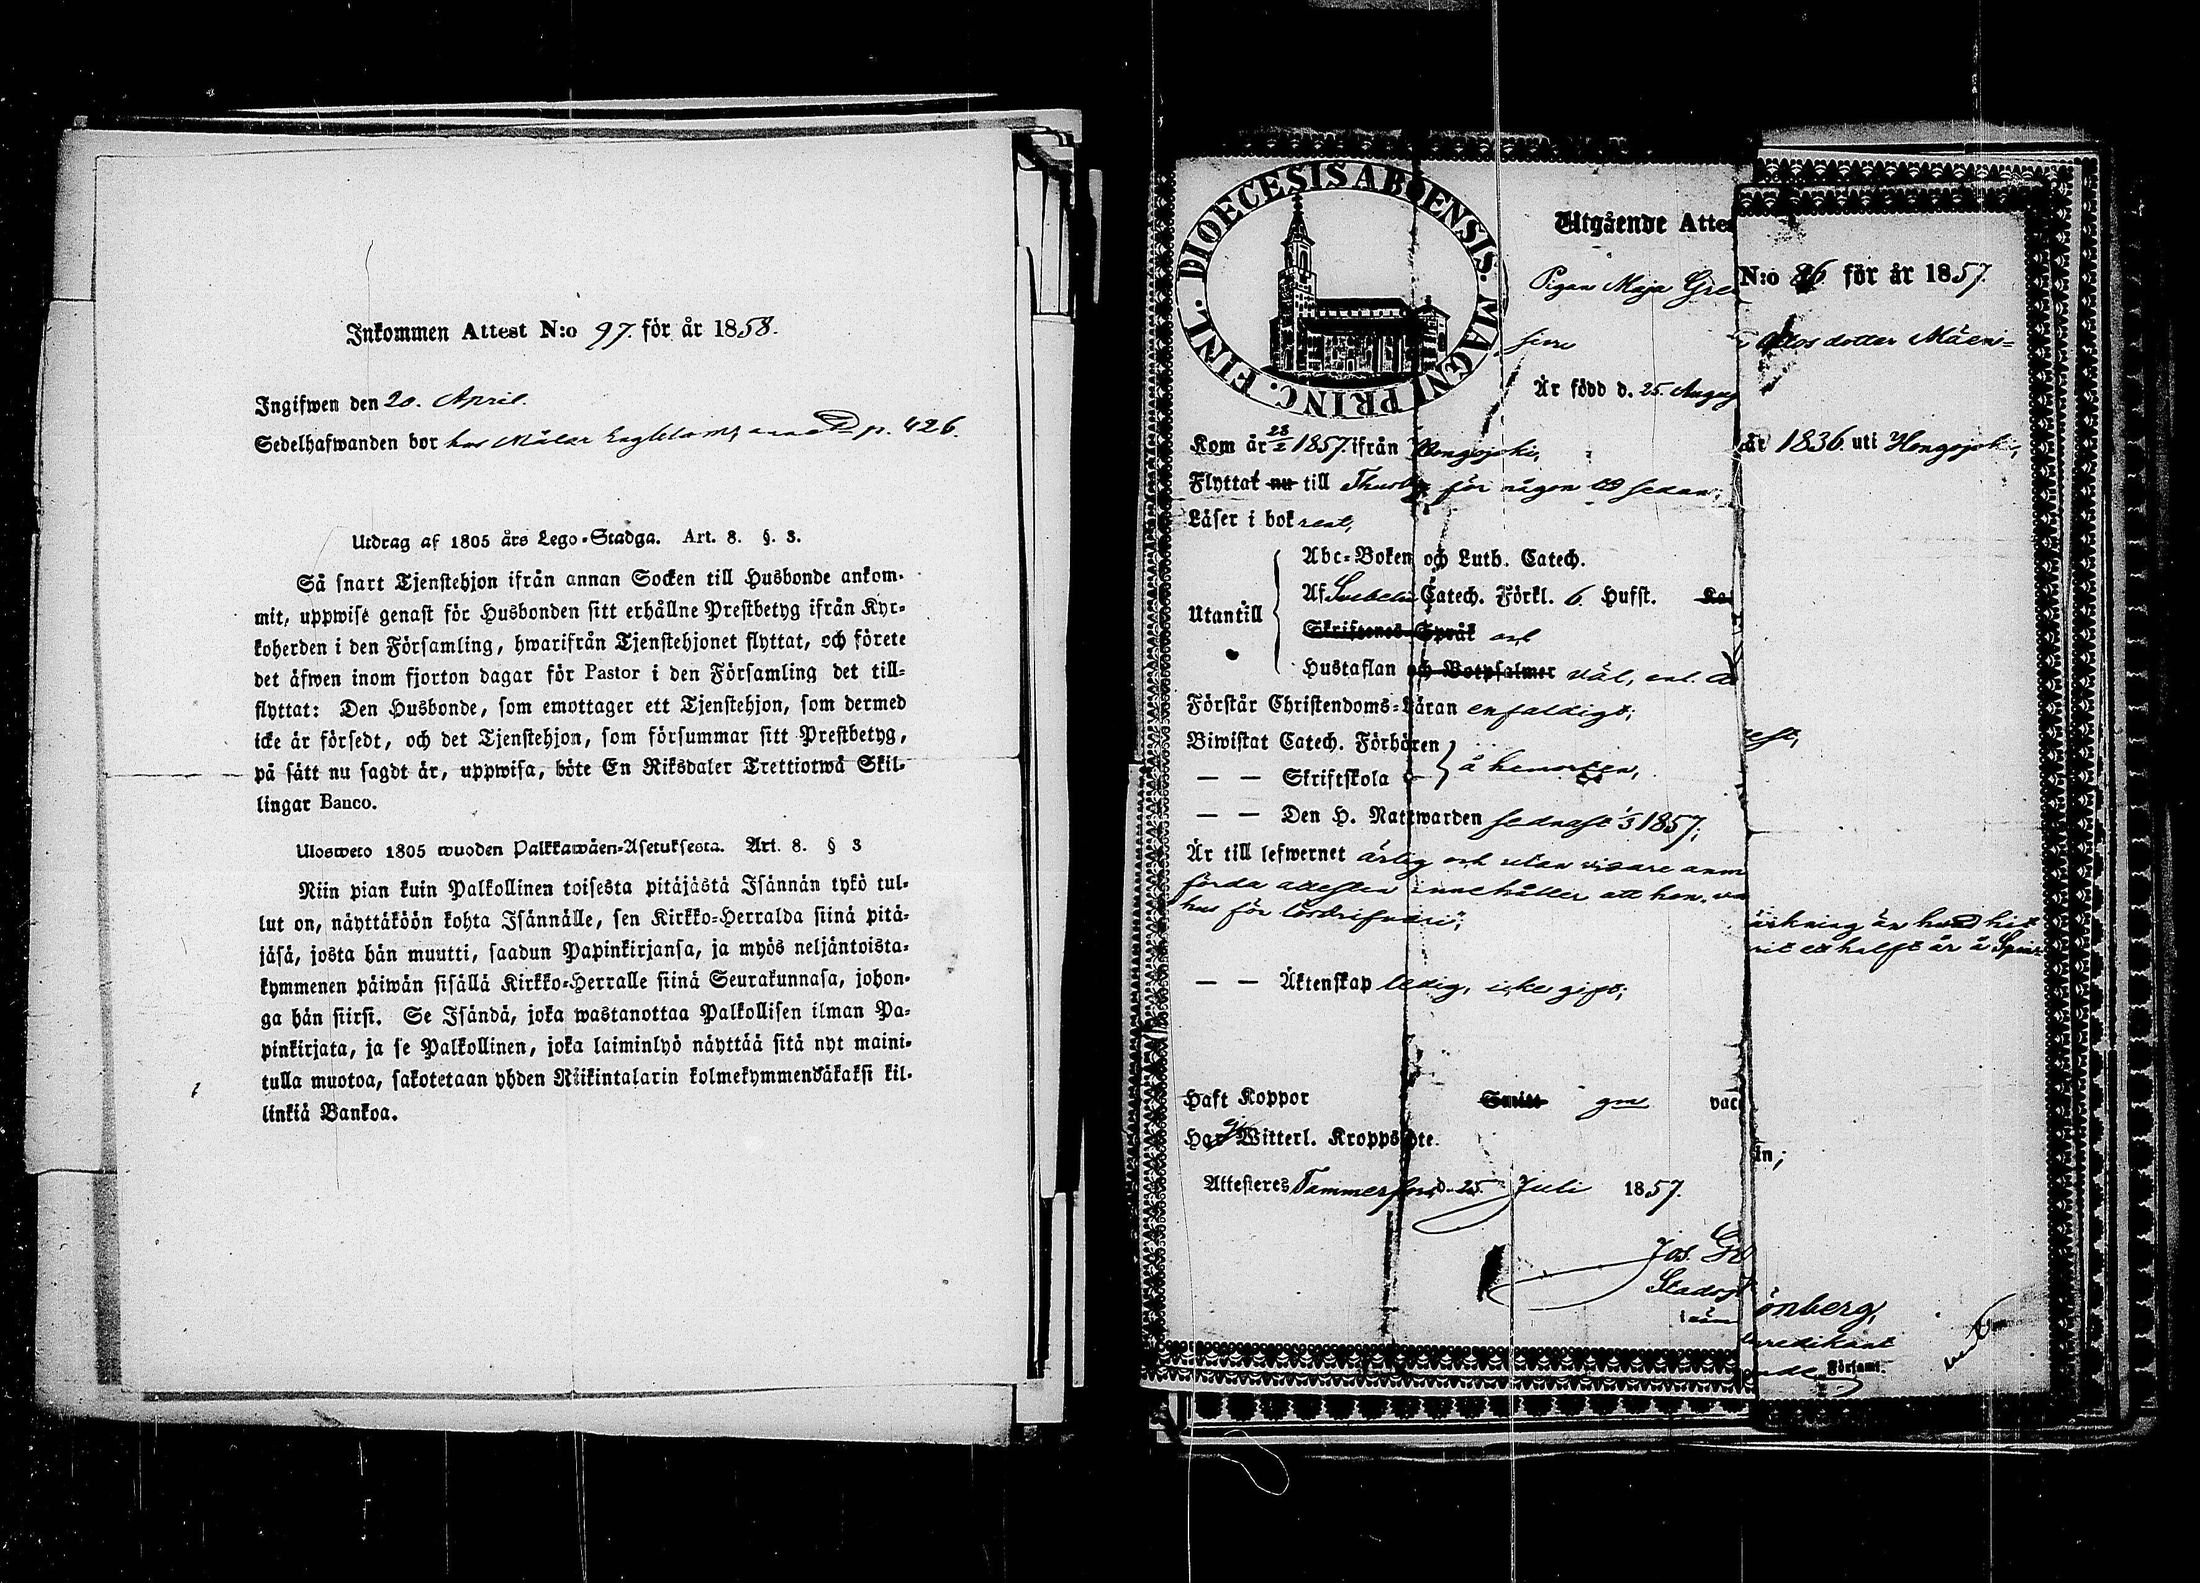 Inkommen Attest N:o 97. för år 1858.
Ingifwen den 20. April.
Sedelhafwanden bor hos Målar p. 426.
Utdrag af 1805 års Lego-Stadga. Art. 8. §. 3.
Så snart Tjenstehjon ifrån annan Socken till Husbonde ankom-
mit, uppwise genast för Husbonden sitt erhållne Prestbetyg ifrån Kyr-
koherden i den Församling, hwarifrån Tjenstehjonet flyttat, och förete
det äfwen inom fjorton dagar för Pastor i den Församling det till-
flyttat: Den Husbonde, som emottager ett Tjenstehjon, som dermed
icke är försedt, och det Tjenstehjon, som försummar sitt Prestbetyg,
på sätt nu sagdt är, uppwisa, böte En Riksdaler Trettiotwå Skil-
lingar Banco.
Ulosweto 1805 wuoden Palkkawäen-Asetuksesta. Art. 8. § 3
Niin pian kuin Palkollinen toisesta pitäjästä Isännän tykö tul-
lut on, näyttäköön kohta Isännälle, sen Kirkko-Herralda siinä pitä-
jäsä, josta hän muutti, saadun Papinkirjansa, ja myös neljäntoista-
kymmenen päiwän sisällä Kirkko-Herralle siinä Seurakunnasa, johon-
ga hän siirsi. Se Isändä, joka wastanottaa Palkollisen ilman Pa-
pinkirjata, ja se Palkollinen, joka laiminlyö näyttää sitä nyt maini-
tulla muotoa, sakotetaan yhden Riikintalarin kolmekymmendäkaksi kil-
linkiä Bankoa.
FINL. DIOECESIS ABOENSIS. MAGNI PRINC.
Utgående Attest N:o 86 för år 1857.
Pigan Maja Gre Ottosdotter Mäen-
Är född d. 25. Augu år 1836. uti Hongojoki,
Kom år 28/2 1857. ifrån Hongojoki,
Flyttat nu till för någon tid sedan;
Läser i bok rent,
Utantill
Abc-Boken och Luth. Catech.
Af Svebelii Catech. Förkl. 6. Hufst. Ka
Skriftenes Språk och
Hustaflan och Botpsalmer väl, enl.
Förstår Christendoms-Läran enfaldigt;
Biwistat Catech. Förhören
— — Skriftskola å hemorten,
— — Den H. Nattwarden sednast 1/3 1857;
Är till lefwernet ärlig och utan vidare anmärkning än hvad hit
förda attesten innehåller att hon varit ett halft år å Spinn-
hus för lösdrifveri;
— — Äktenskap ledig, icke gift;
Haft Koppor Smitt gm vaccin;
Har Witterl. Kroppslyte.
Attesteras Tammerfors d. 25. Juli 1857.
Jos. Grönberg,
Stadspredikant
Församl.